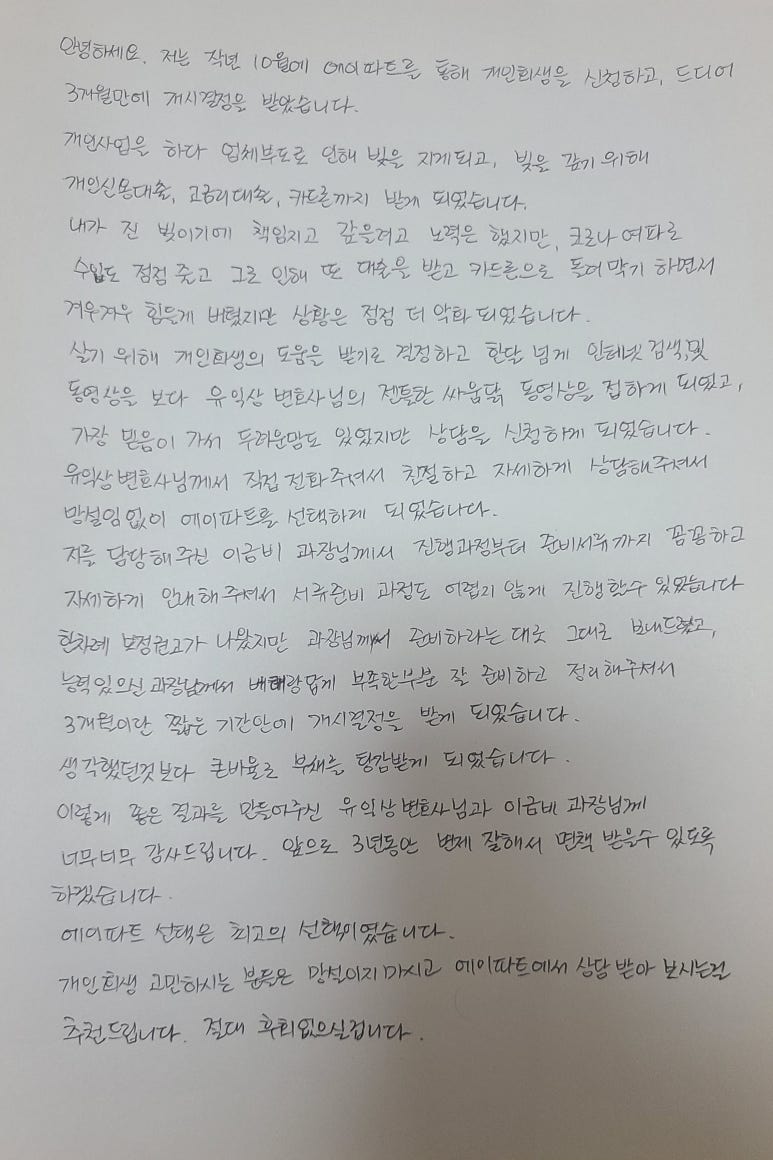 안녕하세요. 저는 작년 10월에 에이파트를 통해 개인회생을 신청하고, 드디어
3개월만에 개시결정을 받았습니다.
개인사업을 하다 업체부도로 인해 빚을 지게되고, 빚을 갚기 위해
개인신용대출, 고금리대출, 카드론까지 받게 되었습니다.
내가 진 빚이기에 책임지고 갚을려고 노력은 했지만, 코로나여파로
수입도 점점 줄고 그로 인해 또 대출을 받고 카드론으로 돌려막기 하면서
겨우겨우 힘들게 버텼지만 상황은 점점 더 악화 되었습니다.
살기 위해 개인회생의 도움을 받기로 결정하고 한달 넘게 인터넷 검색, 및
동영상을 보다 유익상 변호사님의 젠틀한 싸움닭 동영상을 접하게 되었고,
가장 믿음이 가서 두려운맘도 있었지만 상담을 신청하게 되었습니다.
유익상변호사님께서 직접 전화주셔서 친절하고 자세하게 상담해주셔서
망설임없이 에이파트를 선택하게 되었습니다.
저를 담당해주신 이금비 과장님께서 진행과정부터 준비서류까지 꼼꼼하고
자세하게 안내해주셔서 서류준비 과정도 어렵지 않게 진행할수 있었습니다
한차례 보정권고가 나왔지만 과장님께서 준비하라는 대로 그대로 보내드렸고,
능력있으신 과장님께서 배태랑답게 부족한부분 잘 준비하고 정리해주셔서
3개월이란 짧은 기간안에 개시결정을 받게 되었습니다.
생각했던것보다 큰비율로 부채를 탕감받게 되었습니다.
이렇게 좋은 결과를 만들어주신 유익상변호사님과 이금비 과장님께
너무너무 감사드립니다. 앞으로 3년동안 변제 잘해서 면책 받을수 있도록
하겠습니다.
에이파트 선택은 최고의 선택이였습니다.
개인회생 고민하시는 분들은 망설이지마시고 에이파트에서 상담 받아 보시는걸
추천드립니다. 절대 후회없으실겁니다.